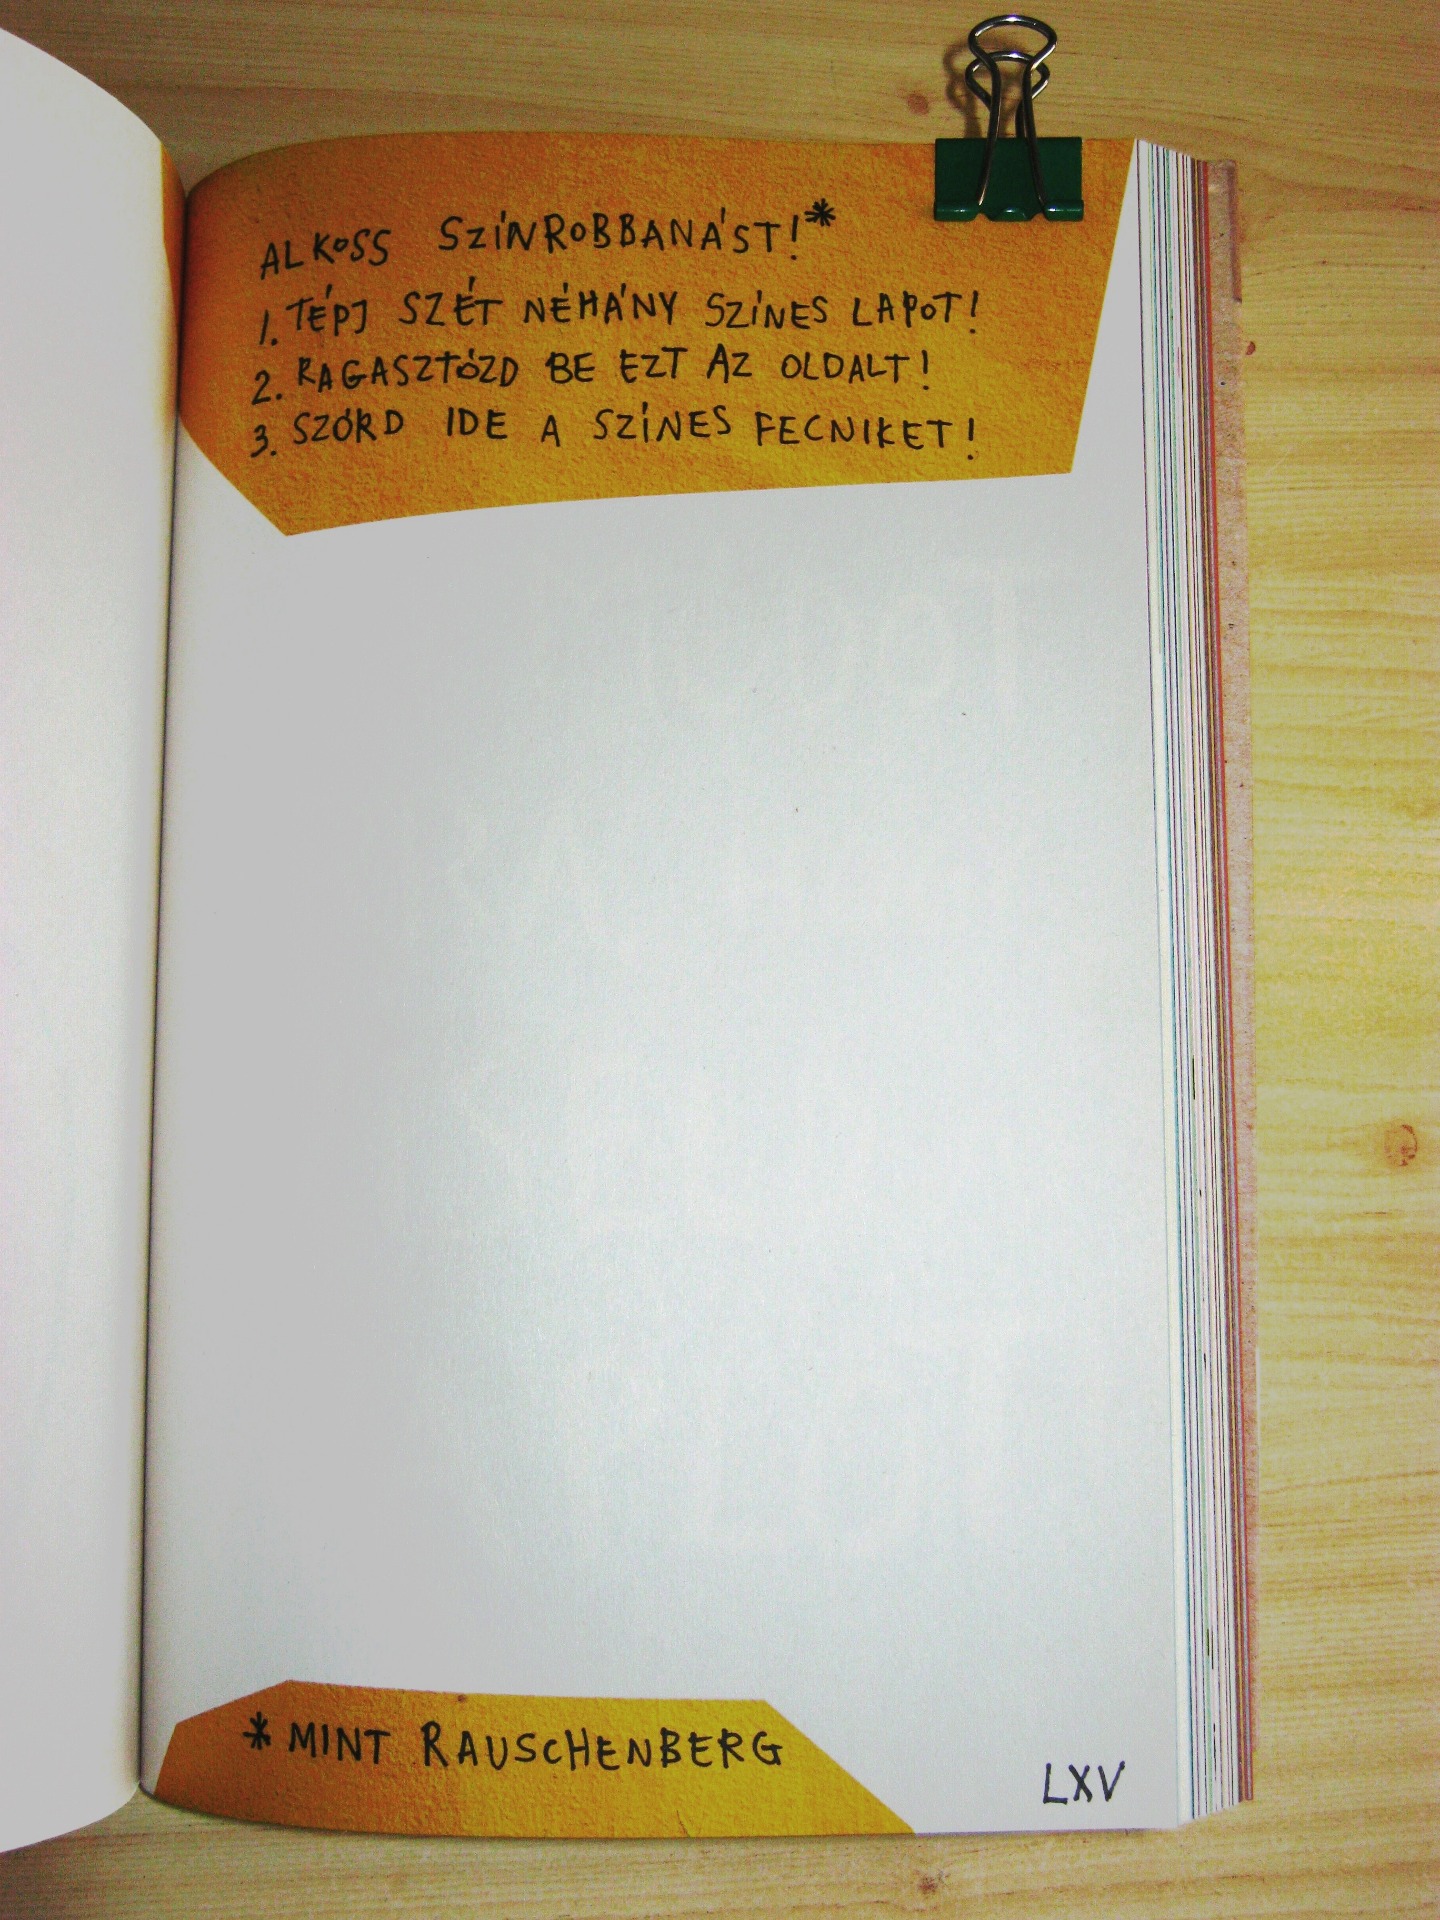 ALKOSS SZÍNROBBANÁST!*
1. TÉPJ SZÉT NÉHÁNY SZÍNES LAPOT!
2. RAGASZTÓZD BE EZT AZ OLDALT!
3. SZÓRD IDE A SZÍNES FECNIKET!
* MINT RAUSCHENBERG
LXV